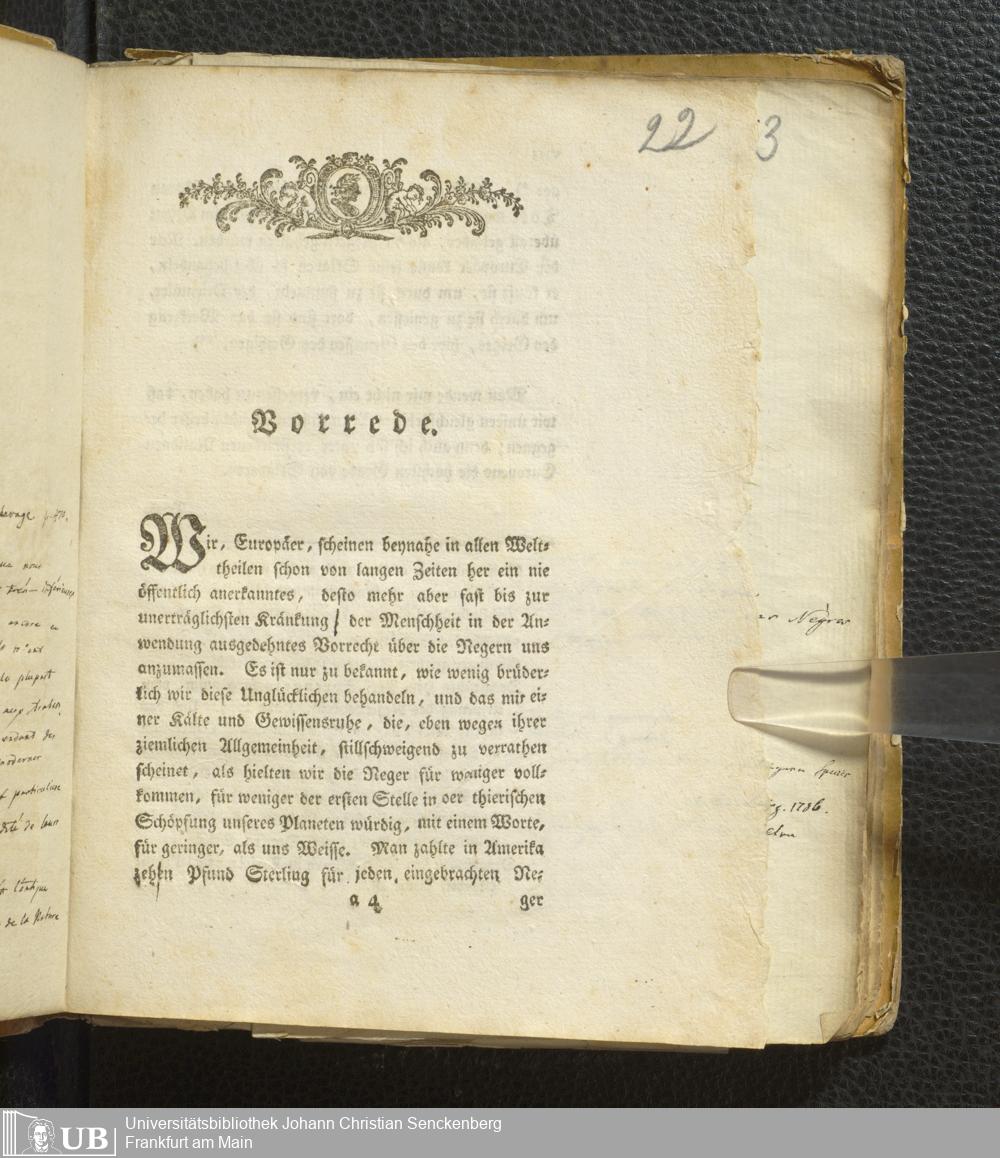 22 3
Vorrede.
Wir, Europäer, scheinen beynahe in allen Welt-
theilen schon von langen Zeiten her ein nie
öffentlich anerkanntes, desto mehr aber fast bis zur
unerträglichsten Kränkung der Menschheit in der An-
wendung ausgedehntes Vorrecht über die Negern uns
anzumassen. Es ist nur zu bekannt, wie wenig brüder-
lich wir diese Unglücklichen behandeln, und das mit ei-
ner Kälte und Gewissensruhe, die, eben wegen ihrer
ziemlichen Allgemeinheit, stillschweigend zu verrathen
scheinet, als hielten wir die Neger für weniger voll-
kommen, für weniger der ersten Stelle in der thierischen
Schöpfung unseres Planeten würdig, mit einem Worte,
für geringer, als uns Weisse. Man zahlte in Amerika
zehen Pfund Sterling für jeden, eingebrachten Ne-
a 4 ger
Negres
1786.
de la Nature
UB
Universitätsbibliothek Johann Christian Senckenberg
Frankfurt am Main